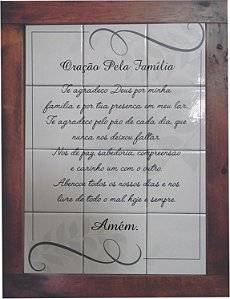 Oração Pela Família
Te agradeço Deus por minha
família e por tua presença em meu lar.
Te agradeço pelo pão de cada dia, que
nunca nos deixou faltar.
Nos de paz, sabedoria, compreensão
e carinho um com o outro.
Abençoe todos os nossos dias e nos
livre de todo o mal, hoje e sempre.
Amém.